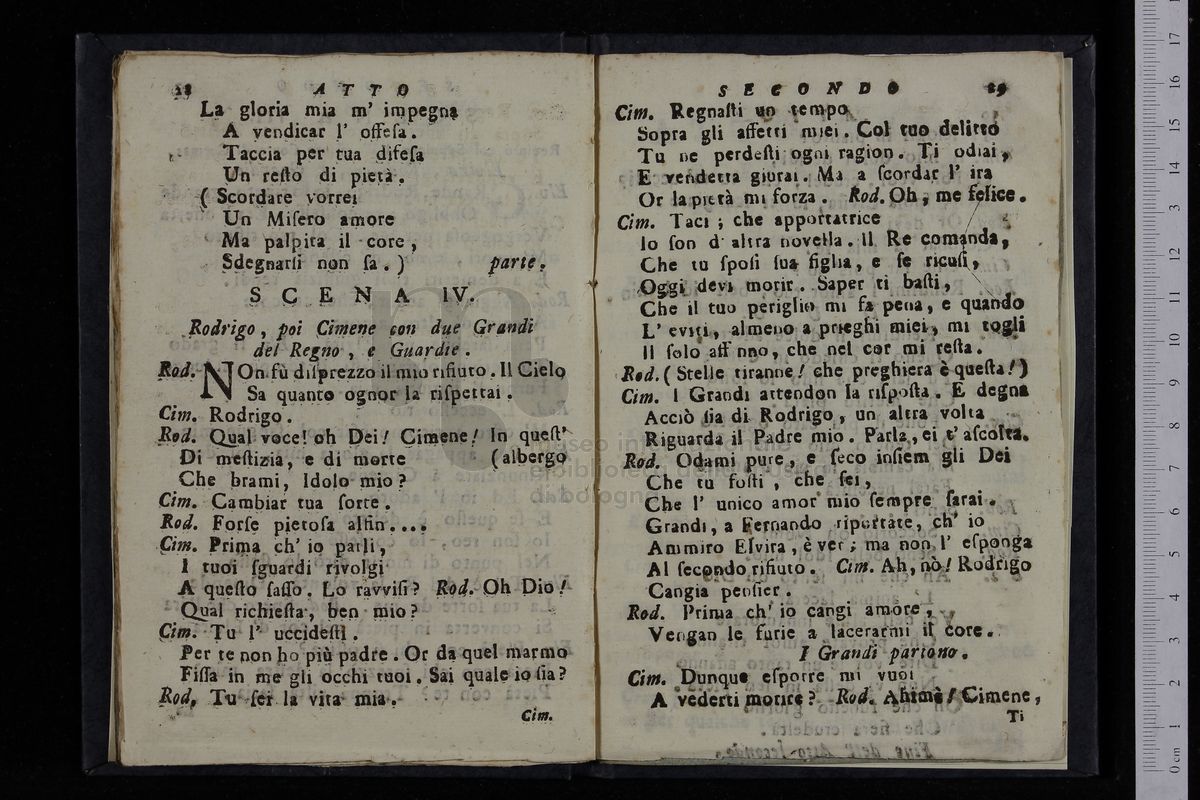 28 ATTO
La gloria mia m' impegna
A vendicar l' offeſa.
Taccia per tua difeſa
Un reſto di pietà.
( Scordare vorrei
Un Miſero amore
Ma palpita il core,
Sdegnarſi non ſa. ) parte.
SCENA IV.
Rodrigo, poi Cimene con due Grandi
del Regno, e Guardie.
Rod. NOn fù diſprezzo il mio rifiuto. Il Cielo
Sa quanto ognor la riſpettai.
Cim. Rodrigo.
Rod. Qual voce! oh Dei! Cimene! In queſt'
Di meſtizia, e di morte (albergo
Che brami, Idolo mio?
Cim. Cambiar tua ſorte.
Rod. Forſe pietoſa alfin....
Cim. Prima ch' io parli,
I tuoi ſguardi rivolgi
A queſto ſaſſo. Lo ravviſi? Rod. Oh Dio!
Qual richieſta, ben mio?
Cim. Tu l' uccideſti.
Per te non ho più padre. Or da quel marmo
Fiſſa in me gli occhi tuoi. Sai quale io ſia?
Rod. Tu ſei la vita mia.
Cim.
SECONDO 29
Cim. Regnaſti un tempo
Sopra gli affetti miei. Col tuo delitto
Tu ne perdeſti ogni ragion. Ti odiai,
E vendetta giurai. Ma a ſcordar l' ira
Or la pietà mi forza. Rod. Oh, me felice.
Cim. Taci; che apportatrice
Io ſon d' altra novella. Il Re comanda,
Che tu ſpoſi ſua figlia, e ſe ricuſi,
Oggi devi morir. Saper ti baſti,
Che il tuo periglio mi fa pena, e quando
L' eviti, almeno a prieghi miei, mi togli
Il ſolo affanno, che nel cor mi reſta.
Rod. ( Stelle tiranne! che preghiera è queſta! )
Cim. I Grandi attendon la riſpoſta. E degna
Acciò ſia di Rodrigo, un altra volta
Riguarda il Padre mio. Parla, ei t' aſcolta.
Rod. Odami pure, e ſeco inſiem gli Dei
Che tu foſti, che ſei,
Che l' unico amor mio ſempre ſarai.
Grandi, a Fernando riportate, ch' io
Ammiro Elvira, è ver; ma non l' eſponga
Al ſecondo rifiuto. Cim. Ah, nò! Rodrigo
Cangia penſier.
Rod. Prima ch' io cangi amore,
Vengan le furie a lacerarmi il core.
I Grandi partono.
Cim. Dunque eſporre mi vuoi
A vederti morire? Rod. Ahimè! Cimene,
Ti